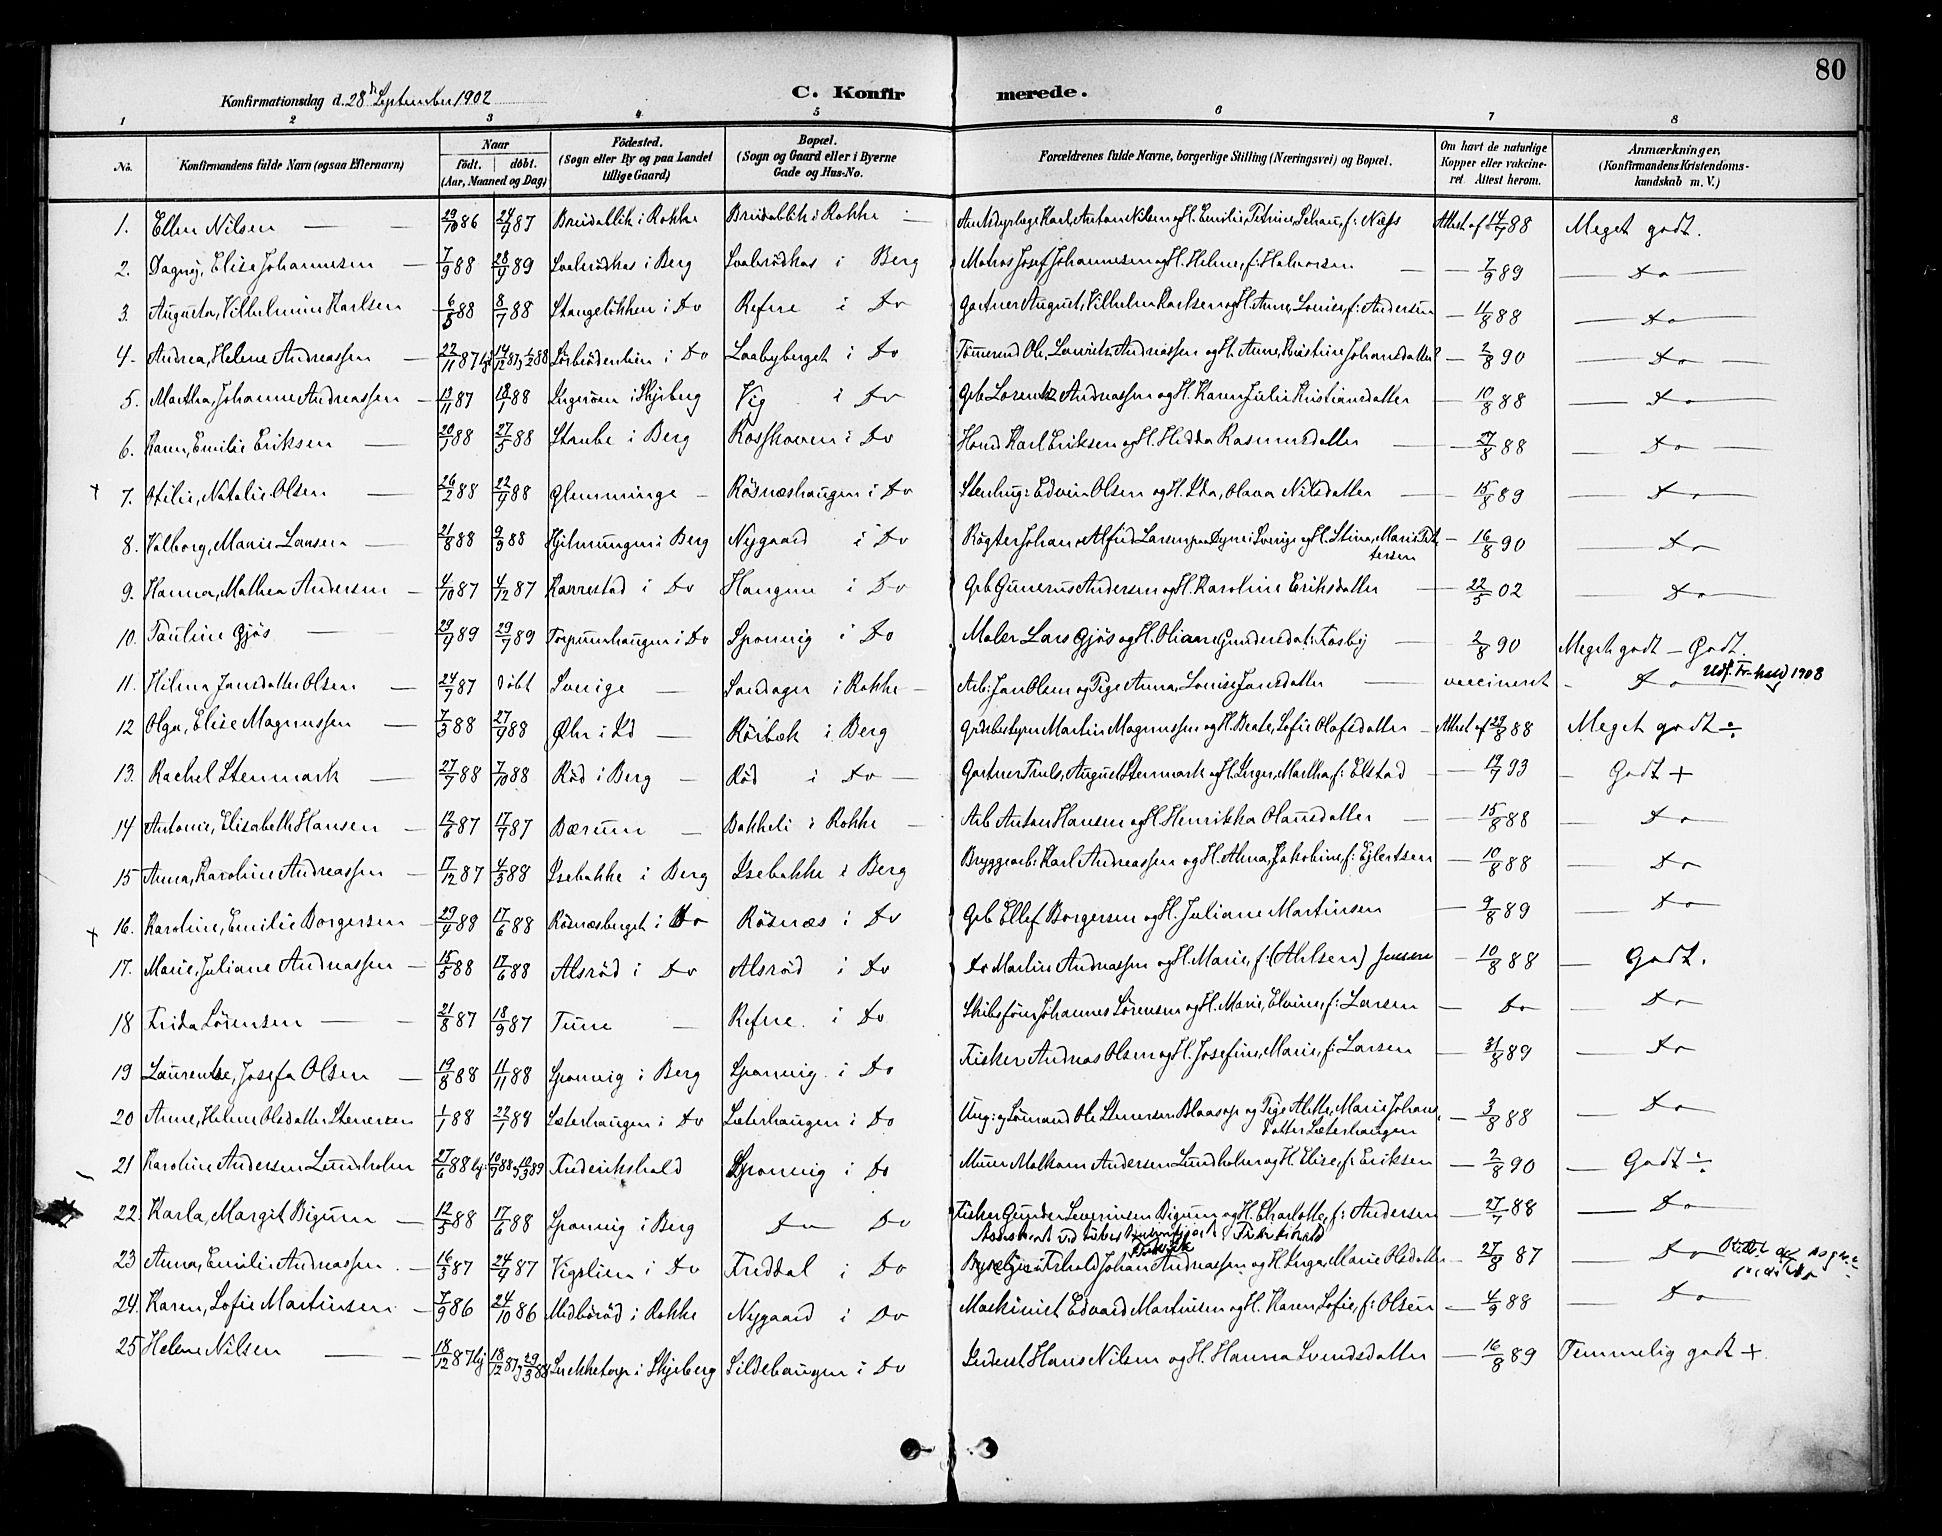 80
Konfirmationsdag d. 28 September 1902
C. Konfirmerede.
1 2 3 4 5 6 7 8
No. Konfirmandens fulde Navn (ogsaa Efternavn) Naar født. døbt. (Aar, Maaned og Dag) Födested. (Sogn eller By og paa Landet tillige Gaard) Bopæl. (Sogn og Gaard eller i Byerne Gade og Hus-No. Forældrenes fulde Navne, borgerlige Stilling (Næringsvei) og Bopæl. Om havt de naturlige Kopper eller vakcineret. Attest herom. Anmærkninger, (Konfirmandens Kristendomskundskab m. V.)
1. Ellen Nilsen 29/10 86 24/9 87 Breidablik i Rokke Breidablik i Rokke Karl, Anton Nilsen og H. Emilie, Petrine f: Næss Attest af 14/7 88 Meget godt.
2. Dagny, Elise Johannesen 7/9 88 28/9 89 i Berg i Berg Matros Josef Johannesen og H. Helene, f: Halvorsen 7/9 89 Do
3. Augusta, Vilhelmine Karlsen 6/5 88 8/7 88 Stangeløkken i Do Refne i Do Gartner August, Vilhelm Karlsen og H. Anne, Louise, f: Andersen 11/8 88 Do
4. Andrea, Helene Andreassen 22/11 87 i Do Laabyberget i Do Tømmermd Ole, Lauritz Andreassen og H. Anne, Kristine Johansdatter 2/8 90 Do
5. Martha, Johanne Andreassen 13/11 87 88 Ingerøen i Skjeberg Vig i Do Grb Lorentz Andreassen og H. Karen Julie Kristiansdatter 10/8 88 Do
6. Karen, Emilie Eriksen 20/1 88 27/5 88 Staube i Berg Rosskoven i Do Karl Eriksen og H. Hedda Rasmusdatter 27/8 88 Do
7. Otilie, Natalie Olsen 26/2 88 22/9 88 Glemminge Røsnæshaugen i Do Stenhug: Edvin Olsen og H. Ida, Olava Nilsdatter 15/8 89 Do
8. Valborg, Marie Larsen 21/8 88 9/3 88 i Berg Nygaard i Do Røgter Johan Alfred Larsen i Sverige og H. Stina, Marie Pettersen 16/8 90 Do
9. Hanna, Mathea Andersen 4/10 87 4/12 87 Karrestad i Do Haugene i Do Grb Gunerius Andersen og H. Karoline Eriksdatter 22/5 02 Do
10. Pauline Gjøs 29/7 89 29/9 89 Torpumhaugen i Do Sponvig i Do Maler Lars Gjøs og H. Oliane Gundersdat: Tosby 2/8 90 Meget godt – Godt.
11. Hilma Jansdatter Olsen 24/7 87 døbt Sverige i Rokke Arb: Jan Olsen og Pige Anna, Louise Jansdatter vaccineret Do Udf. Fr.hald 1908
12 Olga, Elise Magnussen 7/3 88 27/9 88 Øhr i Id Rørbæk i Berg Martin Magnussen og H. Beate, Sofie Olafsdatter Attest af 29/8 88 Meget godt ÷
13. Rachel Stenmark 27/7 88 7/10 88 Rød i Berg Rød i Do Gartner Truls, August Stenmark og H. Inger, Martha f: Elstad 19/7 93 Godt +
14 Antonie, Elisabeth Hansen 12/6 87 17/7 87 Bærum Bakkeli i Rokke Arb Anton Hansen og H. Henrikka Olausdatter 15/8 88 Do
15 Anna, Karoline Andreassen 17/12 87 4/3 88 Isebakke i Berg Isebakke i Berg Bryggearb: Karl Andreassen og H. Alma, Jakobine, f: Ejlertsen 10/8 88 Do
16. Karoline, Emilie Borgersen 29/4 88 17/6 88 Røsnæsberget i Do Røsnæs i Do Grb Ellef Borgersen og H. Juliane Martinsen 9/8 89 Do
17. Marie, Juliane Andreassen 15/5 88 17/6 88 Alsrød i Do Alsrød i Do Do Martin Andreassen og H. Marie, f: (Ahlsen) Jensen 10/8 88 Godt.
18 Frida Sørensen 21/8 87 18/9 87 Tune Refne i Do Skibsfører Johannes Sørensen og H. Marie, Elvine, f: Larsen Do Do
19 Laurentze, Josefa Olsen 19/8 88 11/11 88 Sponvig i Berg Sponvig i Do Fisker Andreas Olsen og H. Josefine, Marie, f: Larsen 31/8 89 Do
20 Anne, Helene Olsdatter Stenersen 1/1 88 22/1 88 Sæterhaugen i Do Sæterhaugen i Do Ung: og Sømand Ole Stenersen Blaasop og Pige Alette, Marie Johansdatter Sæterhaugen 3/8 88 Do
21 Karoline Andersen Lundholm 27/6 88 Frederikshald Sponvig i Do Murer Malkom Andersen Lundholm og H. Elise, f: Eriksen 2/8 90 Godt ÷
22. Karla, Margit Bigum 12/5 88 17/6 88 Sponvig i Berg Do Do Fisker Gunder Severinsen Bigum og H. Charlotte, f: Andersen 27/7 88 Do
23 Anna, Emilie Andreassen 16/3 87 24/4 87 Vigslien i Do Freddal i Do Johan Andreassen og H. Inga, Marie Olsdatter 27/8 87 Do
24. Karen, Sofie Martinsen 7/9 86 24/10 86 Midbørød i Rokke Nygaard i Do Maskinist Edvard Martinsen og H. Karen, Sofie, f: Olsen 4/9 88 Do
25 Helene Nilsen 18/12 87 i Skjeberg Sildehaugen i Do Hans Nilsen og H. Hanna Svendsdatter 16/8 89 Temmelig godt +